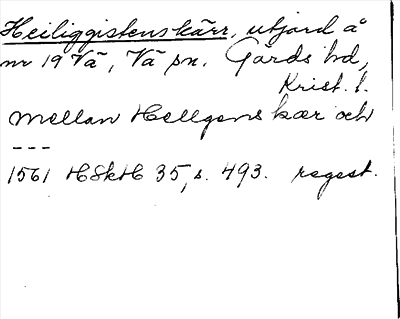 Heiliggistenskärr, utjord å
nr 19 Vä, Vä sn. Gärds hd,
Krist. l.
mellan Hellgens kær och
---
1561 HSkH 35, s. 493. regest.